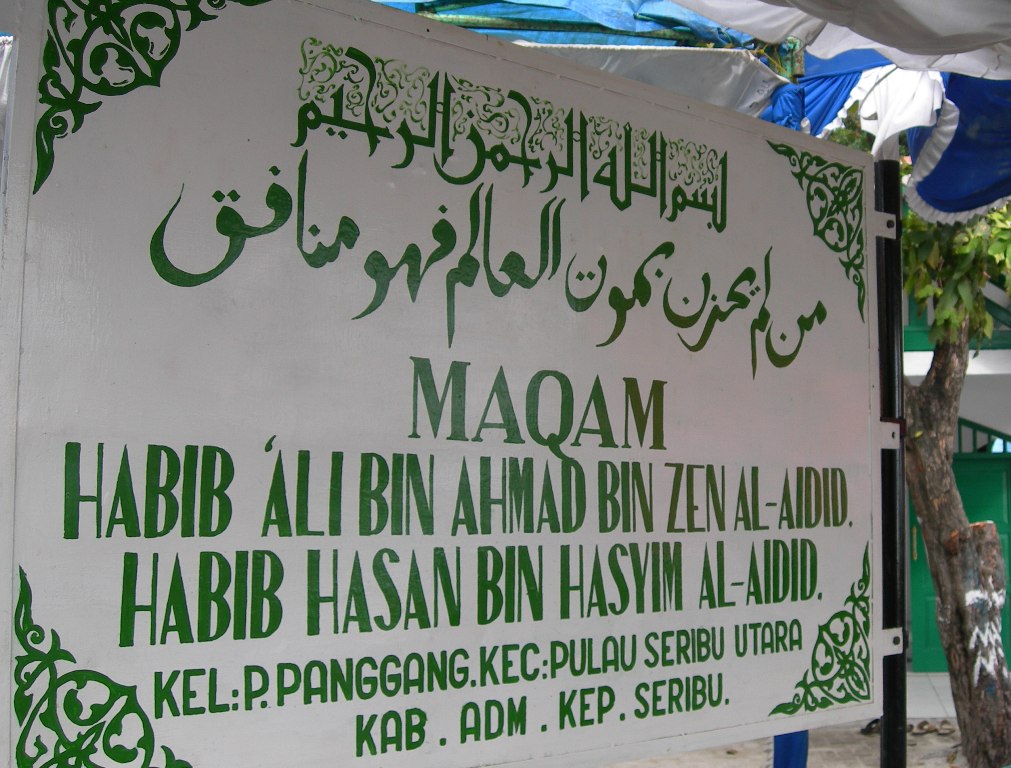 بسم الله الرحمن الرحيم
من لم يحزن بموت العالم فهو منافق
MAQAM
HABIB 'ALI BIN AHMAD BIN ZEN AL-AIDID.
HABIB HASAN BIN HASYIM AL-AIDID.
KEL:P.PANGGANG.KEC:PULAU SERIBU UTARA
KAB. ADM. KEP. SERIBU.